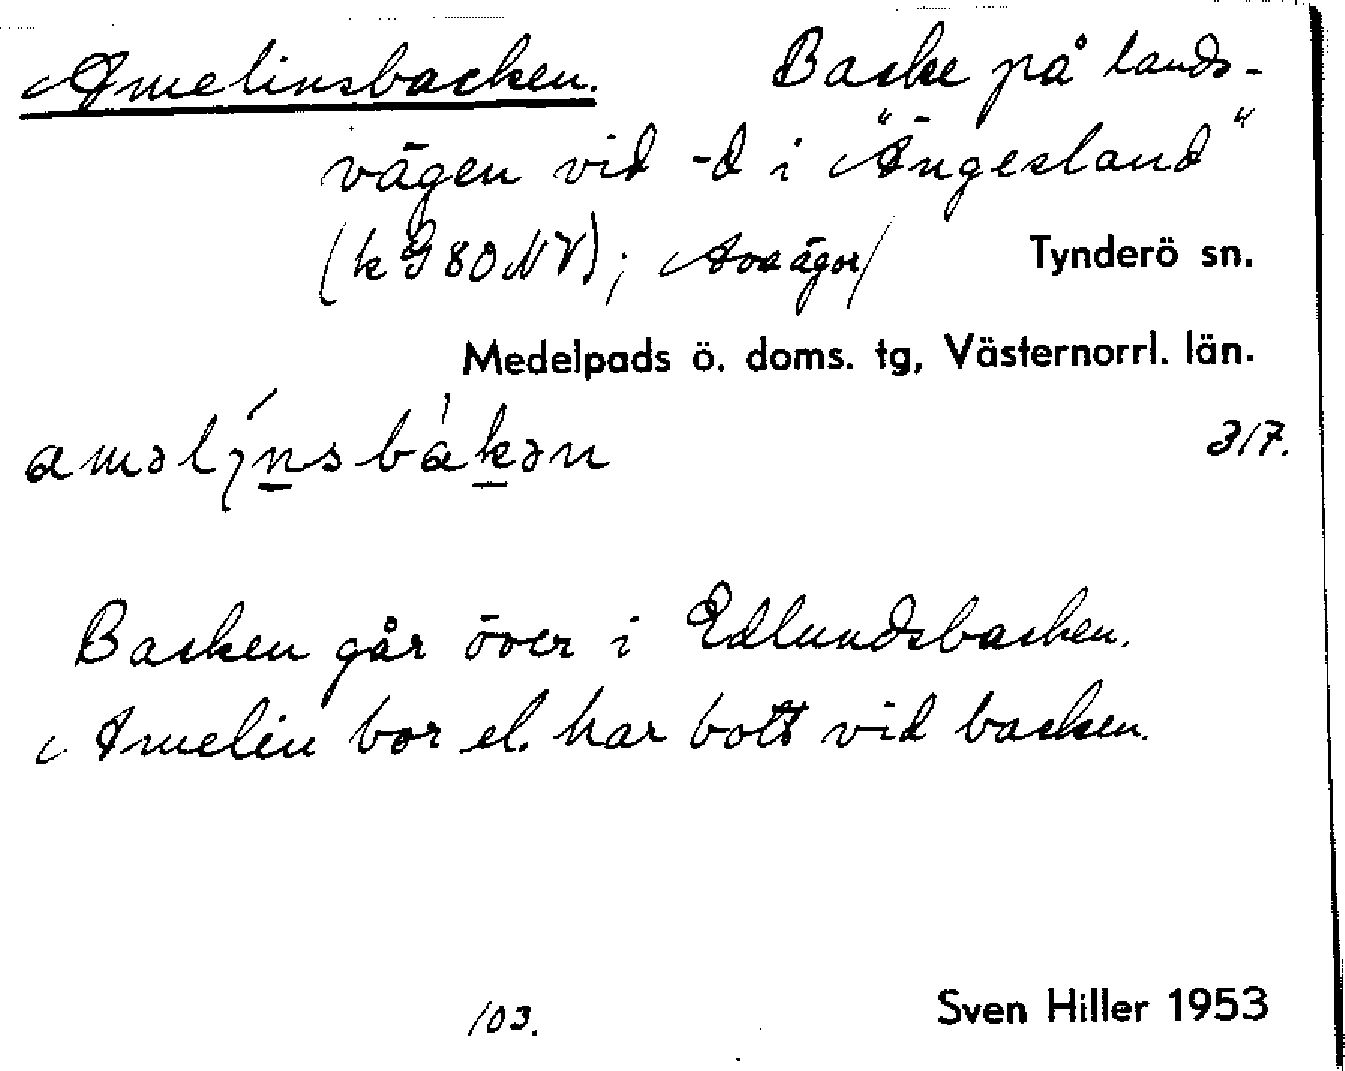 Amelinsbacken. Backe på lands-
vägen vid -d i "Ängesland"
(k G 80 NV); Avaägor/ Tynderö sn.
Medelpads ö. doms. tg, Västernorrl. län.
317.
Backen går över i Edlundsbacken.
Amelin bor el. har bott vid backen.
103. Sven Hiller 1953